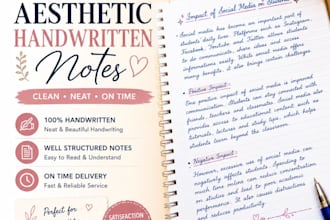 AESTHETIC
HANDWRITTEN
Notes
CLEAN • NEAT • ON TIME
100% HANDWRITTEN
Neat & Beautiful Handwriting
WELL STRUCTURED NOTES
Easy to Read & Understand
ON TIME DELIVERY
Fast & Reliable Service
Perfect for
SATISFACTION
Impact of Social Media on
Social media has become an important part of
students' daily lives. Platforms such as Instagram,
Facebook, YouTube and Twitter allow students
to communicate, share ideas and access
information easily. While social media offers
many benefits, it also brings certain challenges.
Positive Impact:
One positive impact of social media is improved
communication. Students can stay connected with
friends, teachers and classmates. Social media also
provides access to educational content such as
tutorials, lectures and study tips, which helps
students learn beyond the classroom.
Negative Impact:
However, excessive use of social media can
negatively affect students. Spending too
much time online can reduce concentration
on studies and lead to poor academic
performance. It also causes distractions
and reduces productivity.